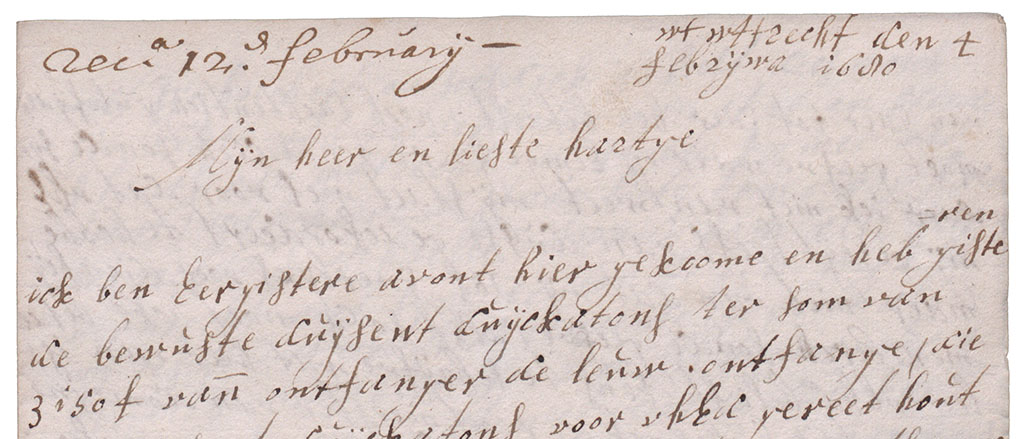 Rec.a 12.d february –
wt wttrecht den 4
febrywa 1680
Mÿn heer en lieste hartye
=ren
ick ben Eergistere avont hier gekoome en heb giste
de bewuste duÿsent duÿckatons ter som van
3150 f vañ ontfanger de leuw ontfange / die
duÿckatons voor vhEd gereet hout